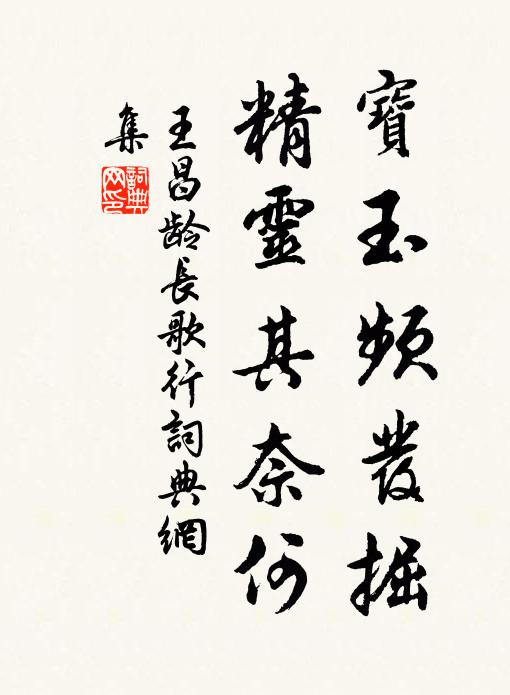 寶玉頻發掘
精靈其奈何
王昌龄長歌行詞典網
集
詞典
网印